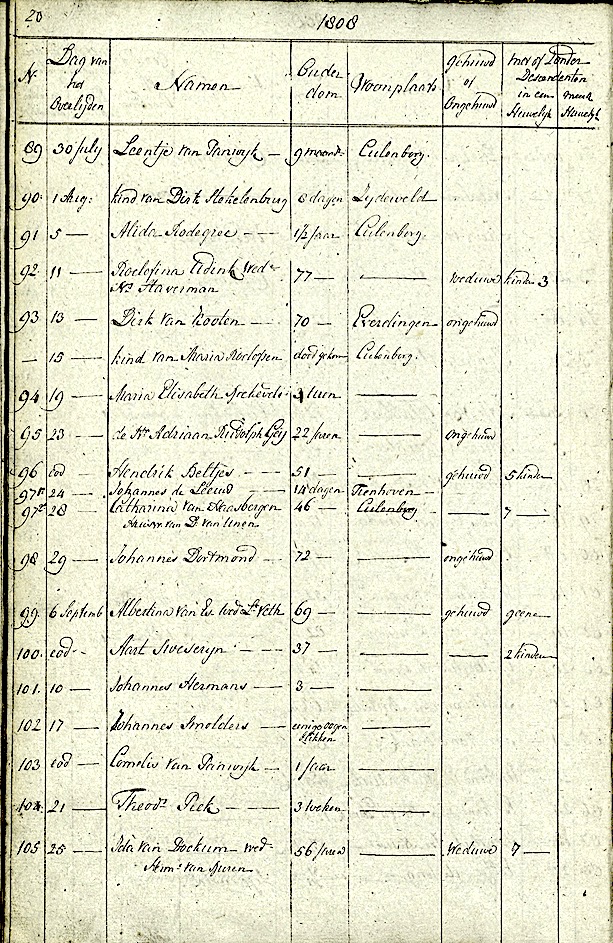 20
1808
N. Dag van het Overlijden Namen Ouderdom Woonplaats gehuwd of Ongehuwd met of Zonder Descendenten in een Huwelijk meer Huwelijk
89 30 July Leentje van Panwyk — 9 maand Culenborg.
90. 1 Aug: kind van Dirk Stekelenburg 8 dagen Zydeveld
91 5 — Alida Rodegroe — 1/2 Jaar Culenborg.
92. 11 — Roelofina Edink Wede 77 — — Weduwe kinder 3
Ns. Haverman
93 13 — Dirk van Kooten — 70 — Everdingen ongehuwd
— 15 — kind van Maria Roelofsen doodgeboren Culenborg.
94 19 — Maria Elisabeth 3 uren —
95 23 — de Hr Adriaan Rudolph Geij 22 Jaren — Ongehuwd
96 eod — Hendrik Beltjes — 51 — — gehuwd 5 kinder
97 24 — Johannes de Leeuw — 14 dagen Tienhoven —
97 28 Catharina van Haasbergen 46 — Culenborg — 7 —
Huisvr. van D. van Unen
98 29 — Johannes Dortmond — 72 — — ongehuwd
99. 6 Septemb Albertina van Es Wed Lt. Veth 69 — — gehuwd geene
100. eod — Aart Sweseryn — 37 — — — 2 kinder
101. 10 — Johannes Hermans — 3 — —
102 17 — Johannes Smolders — eenige oogenblikken —
103 eod — Cornelis van Panwyk — 1 Jaar —
104. 21 — Theodr. Piek — — 3 weken —
105 25 — Ida van Dockum wed 56 Jaren — Weduwe 7 —
Hms van Buren